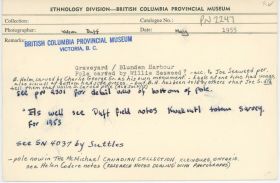 ETHNOLOGY DIVISION—BRITISH COLUMBIA PROVINCIAL MUSEUM
Collection: Catalogue No.: PN 2247
Photographer: Wilson Duff May 1955
Remarks: BRITISH COLUMBIA PROVINCIAL MUSEUM
VICTORIA, B. C.
Graveyard / Blunden Harbour
Pole carved by Willie Seaweed? - acc. to Joe Seaweed per.
B. Holm, carved by Charlie George Sr. as his own monument.
See PN 2301 for detail view of bottom of pole.
Pls well see Duff field notes Kwakiutl totem survey
for 1953
see SN 4037 by Suttles
- pole now in The McMichael CANADIAN COLLECTION, KLEINBURG, ONTARIO.
see Helen Codere notes